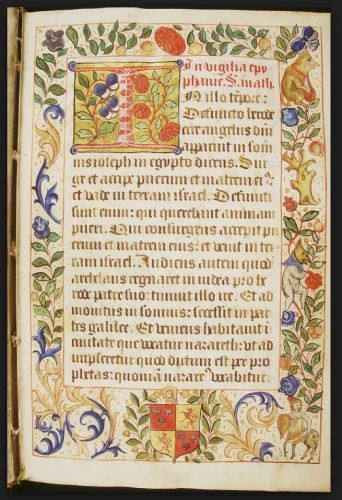 In vigilia epy
phanie. S. math.
In illo tempore:
Defuncto herode
ecce angelus dñi
apparuit in som
nis ioseph in egypto dicens. Sur
ge et accipe puerum et matrem ei⁹:
et vade in terram israel. Defuncti
sunt enim: qui querebant animam
pueri. Qui consurgens accepit pu
erum et matrem eius: et venit in ter
ram israel. Audiens autem quod
archelaus regnaret in iudea pro he
rode patre suo: timuit illo ire. Et ad
monitus in somnis: secessit in par
tes galilee. Et veniens habitauit i
ciuitate que vocatur nazareth: vt ad
impleretur quod dictum est per pro
phetas: quoniã nazare⁹ vocabitur.